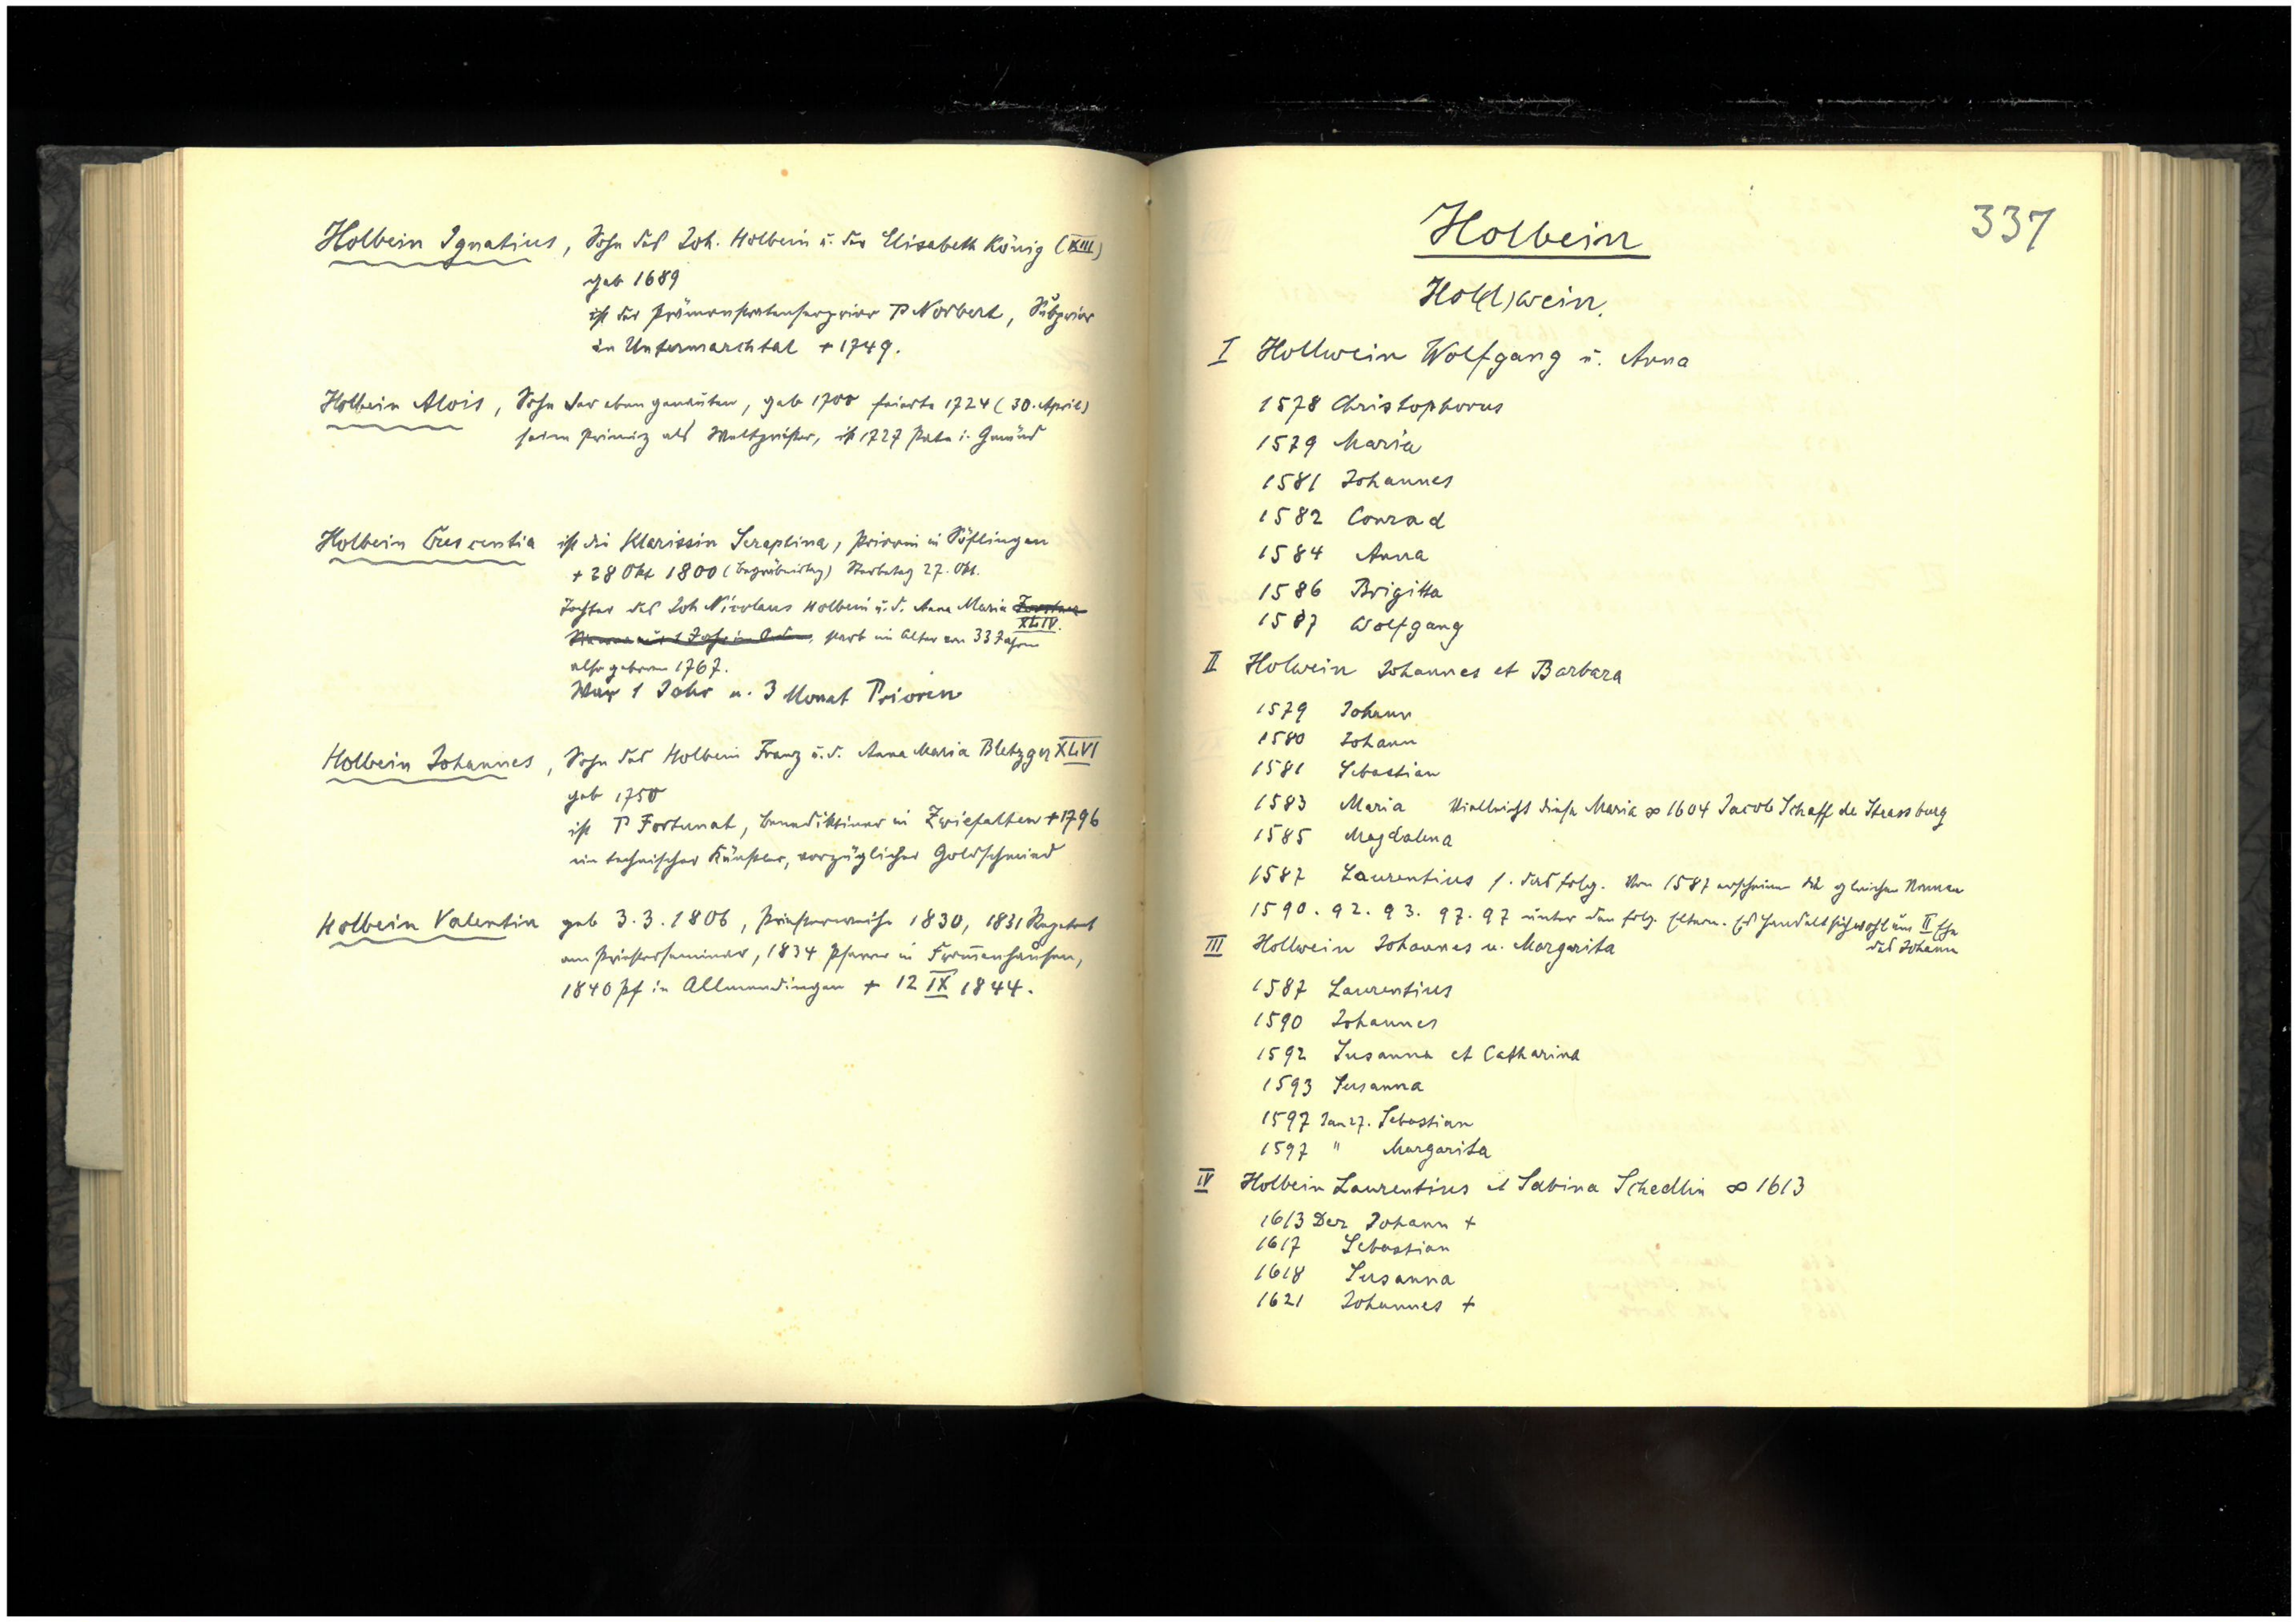 Holbein Ignatius, Sohn des Joh. Holbein u. der Elisabeth König (XIII)
geb 1689
ist der Prämonstratenserprior P Norbert, Subprior
in Untermarchtal + 1749.
Holbein Alois, Sohn der eben genannten, geb 1700 feierte 1724 (30. April)
seine Primiz als Weltpriester, ist 1727 Pate i. Gmünd
Holbein Crescentia ist die Klarissin Seraphina, Priorin in Söflingen
+ 28 Okt 1800 (Begräbnistag) Sterbetag 27. Okt.
Tochter des Joh Nicolaus Holbein u. d. Anna Maria
XLIV.
starb im Alter von 33 Jahren
also geboren 1767.
War 1 Jahr u. 3 Monat Priorin
Holbein Johannes, Sohn des Holbein Franz u. d. Anna Maria Bletzger XLVI
geb 1750
ist P Fortunat, Benediktiner in Zwiefalten + 1796
ein technischer Künstler, vorzüglicher Goldschmied
Holbein Valentin geb 3. 3. 1806, Priesterweihe 1830, 1831 Repetent
am Priesterseminar, 1834 Pfarrer in From̅enhausen,
1840 Pf in Allmendingen + 12 IX 1844.
337
Holbein
Hol(l)wein.
I Hollwein Wolfgang u. Anna
1578 Christophorus
1579 Maria
1581 Johannes
1582 Conrad
1584 Anna
1586 Brigitta
1587 Wolfgang
II Holwein Johannes et Barbara
1579 Johann
1580 Johann
1581 Sebastian
1583 Maria Vielleicht diese Maria ∞ 1604 Jacob Schaff de Strassburg
1585 Magdalena
1587 Laurentius s. das folg. Von 1587 erscheinen die gleichen Namen
1590. 92. 93. 97. 97 unter den folg. Eltern. Es handelt sich wohl um II Ehe
des Johann
III Hollwein Johannes u. Margarita
1587 Laurentius
1590 Johannes
1592 Susanna et Catharina
1593 Susanna
1597 Jan 27. Sebastian
1597 " Margarita
IV Holbein Laurentius et Sabina Schedlin ∞ 1613
1613 Dez Johann +
1617 Sebastian
1618 Susanna
1621 Johannes +